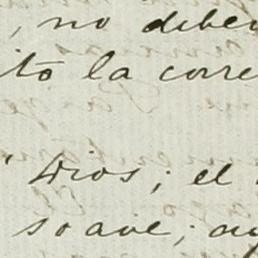 , no deber
ito la corre
Dios; el
soave; au